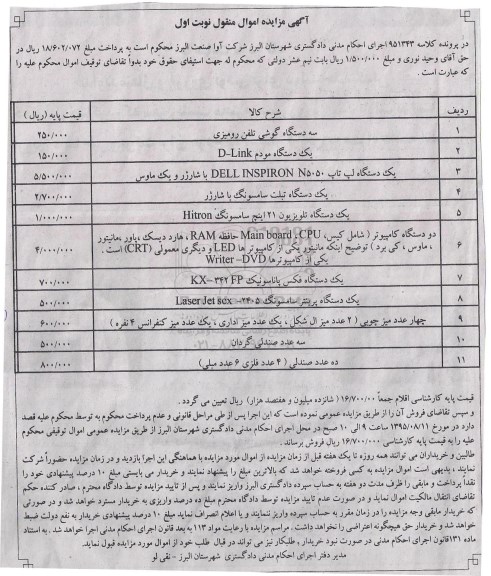 آگهی مزایده اموال منقول نوبت اول
در پرونده کلاسه ۹۵۱۳۴۳ اجرای احکام مدنی دادگستری شهرستان البرز شرکت آوا صنعت البرز محکوم است به پرداخت مبلغ ۱۸/۶۰۲/۰۷۲ ریال در
حق آقای وحید نوری و مبلغ ۱/۵۰۰/۰۰۰ ریال بابت نیم عشر دولتی که محکوم له جهت استیفای حقوق خود بدواً تقاضای توقیف اموال محکوم علیه را
که عبارت است :
ردیف شرح کالا قیمت پایه (ریال )
۱ سه دستگاه گوشی تلفن رومیزی ۲۵۰/۰۰۰
۲ یک دستگاه مودم D-Link ۱۵۰/۰۰۰
۳ یک دستگاه لپ تاپ DELL INSPIRON N۵۰۵۰ با شارژر و یک ماوس ۵/۵۰۰/۰۰۰
۴ یک دستگاه تبلت سامسونگ با شارژر ۲/۷۰۰/۰۰۰
۵ یک دستگاه تلویزیون ۲۱ اینچ سامسونگ Hitron ۱/۰۰۰/۰۰۰
۶ دو دستگاه کامپیوتر ( شامل کیس، Main board ، CPU حافظه RAM، هارد دیسک ،پاور ،مانیتور
، ماوس ، کی برد ) توضیح اینکه مانیتور یکی از کامپیوتر ها LED و دیگری معمولی (CRT) است .
یکی از کامپیوترها Writer –DVD ۴/۰۰۰/۰۰۰
۷ یک دستگاه فکس پاناسونیک KX- ۳۴۲ FP ۷۰۰/۰۰۰
۸ یک دستگاه پرینتر سامسونگ Laser Jet sdx -۲۴۰۵ ۵۰۰/۰۰۰
۹ چهار عدد میز چوبی ( ۲ عدد میز ال شکل ، یک عدد میز اداری ، یک عدد میز کنفرانس ۴ نفره ) ۶۰۰/۰۰۰
۱۰ سه عدد صندلی گردان ۵۰۰/۰۰۰
۱۱ ده عدد صندلی ( ۴ عدد فلزی ۶ عدد مبلی) ۸۰۰/۰۰۰
قیمت پایه کارشناسی اقلام جمعاً ۱۶/۷۰۰/۰۰ ( شانزده میلیون و هفتصد هزار) ریال تعیین می گردد .
و سپس تقاضای فروش آن را از طریق مزایده عمومی نموده است که این اجرا پس از طی مراحل قانونی و عدم پرداخت محکوم به توسط محکوم علیه قصد
دارد در مورخ ۱۳۹۵/۰۸/۱۱ ساعت ۹ الی ۱۰ صبح در محل اجرای احکام مدنی دادگستری شهرستان البرز از طریق مزایده عمومی اموال توقیفی محکوم
علیه را به قیمت پایه کارشناسی ۱۶/۷۰۰/۰۰۰ ریال فروش برساند .
طالبین و خریداران می توانند همه روزه تا یک هفته قبل از زمان مزایده از اموال مورد مزایده با هماهنگی این اجرا بازدید و در زمان مزایده حضوراً شرکت
نمایند ، بدیهی است اموال مزایده به کسی فروخته خواهد شد که بالاترین مبلغ را پیشنهاد نمایند و خریدار می بایستی مبلغ ۱۰ درصد پیشنهادی خود را
نقداً پرداخت و مابقی را ظرف مدت دو هفته به حساب سپرده دادگستری البرز واریز نمایند و پس از تایید مزایده توسط دادگاه محترم ، صادر کننده حکم
تقاضای انتقال مالکیت اموال نماید و در صورت عدم تایید مزایده توسط دادگاه محترم مبلغ ده درصد واریزی به خریدار مسترد خواهد شد و در صورتی
که خریدار مابقی وجه مزایده را در زمان مقرر به حساب سپرده واریز ننمایند و یا اعلام انصراف نماید مبلغ ۱۰ درصد پیشنهادی خریدار به نفع دولت ضبط
خواهد شد و خریدار حق هیچگونه اعتراضی را نخواهد داشت . مراسم مزایده با رعایت مواد ۱۱۳ به بعد قانون اجرای احکام مدنی اجرا خواهد شد . به استناد
ماده ۱۳۱قانون اجرای احکام مدنی در صورت نبود خریدار ، طلبکار نیز می تواند در قبال طلب خود از اموال مورد مزایده قبول نماید.
مدیر دفتر اجرای احکام مدنی دادگستری شهرستان البرز – نقی لو